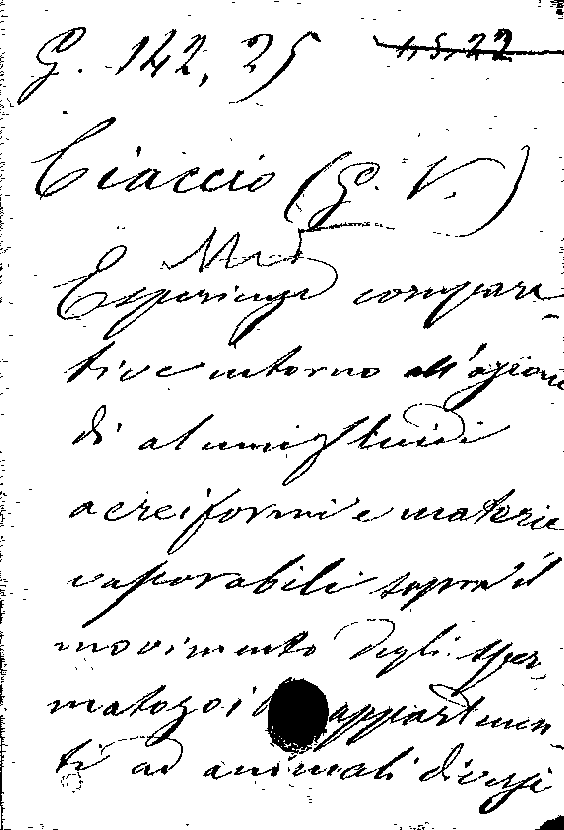 G. 142, 25
Ciaccio (G. V.)
Esperienze compara-
tive intorno all'azione
di alcuni fluidi
aereiformi e materie
vaporabili sopra il
movimento degli sper-
matozoi appartenen-
ti ad animali diversi